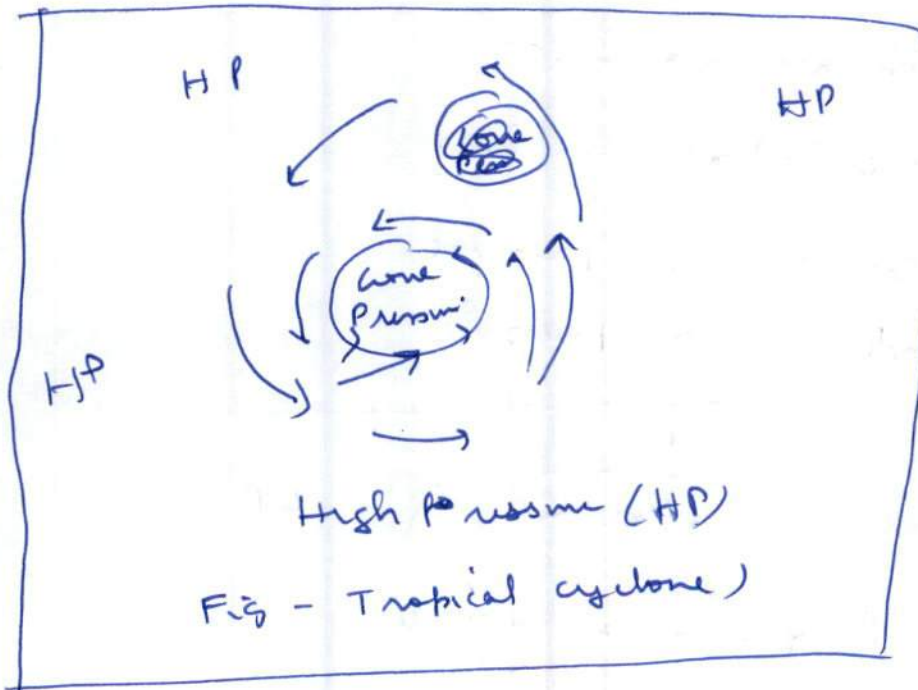 HP
HP
Pressure
HP
High Pressure (HP)
Fig - Tropical cyclone)